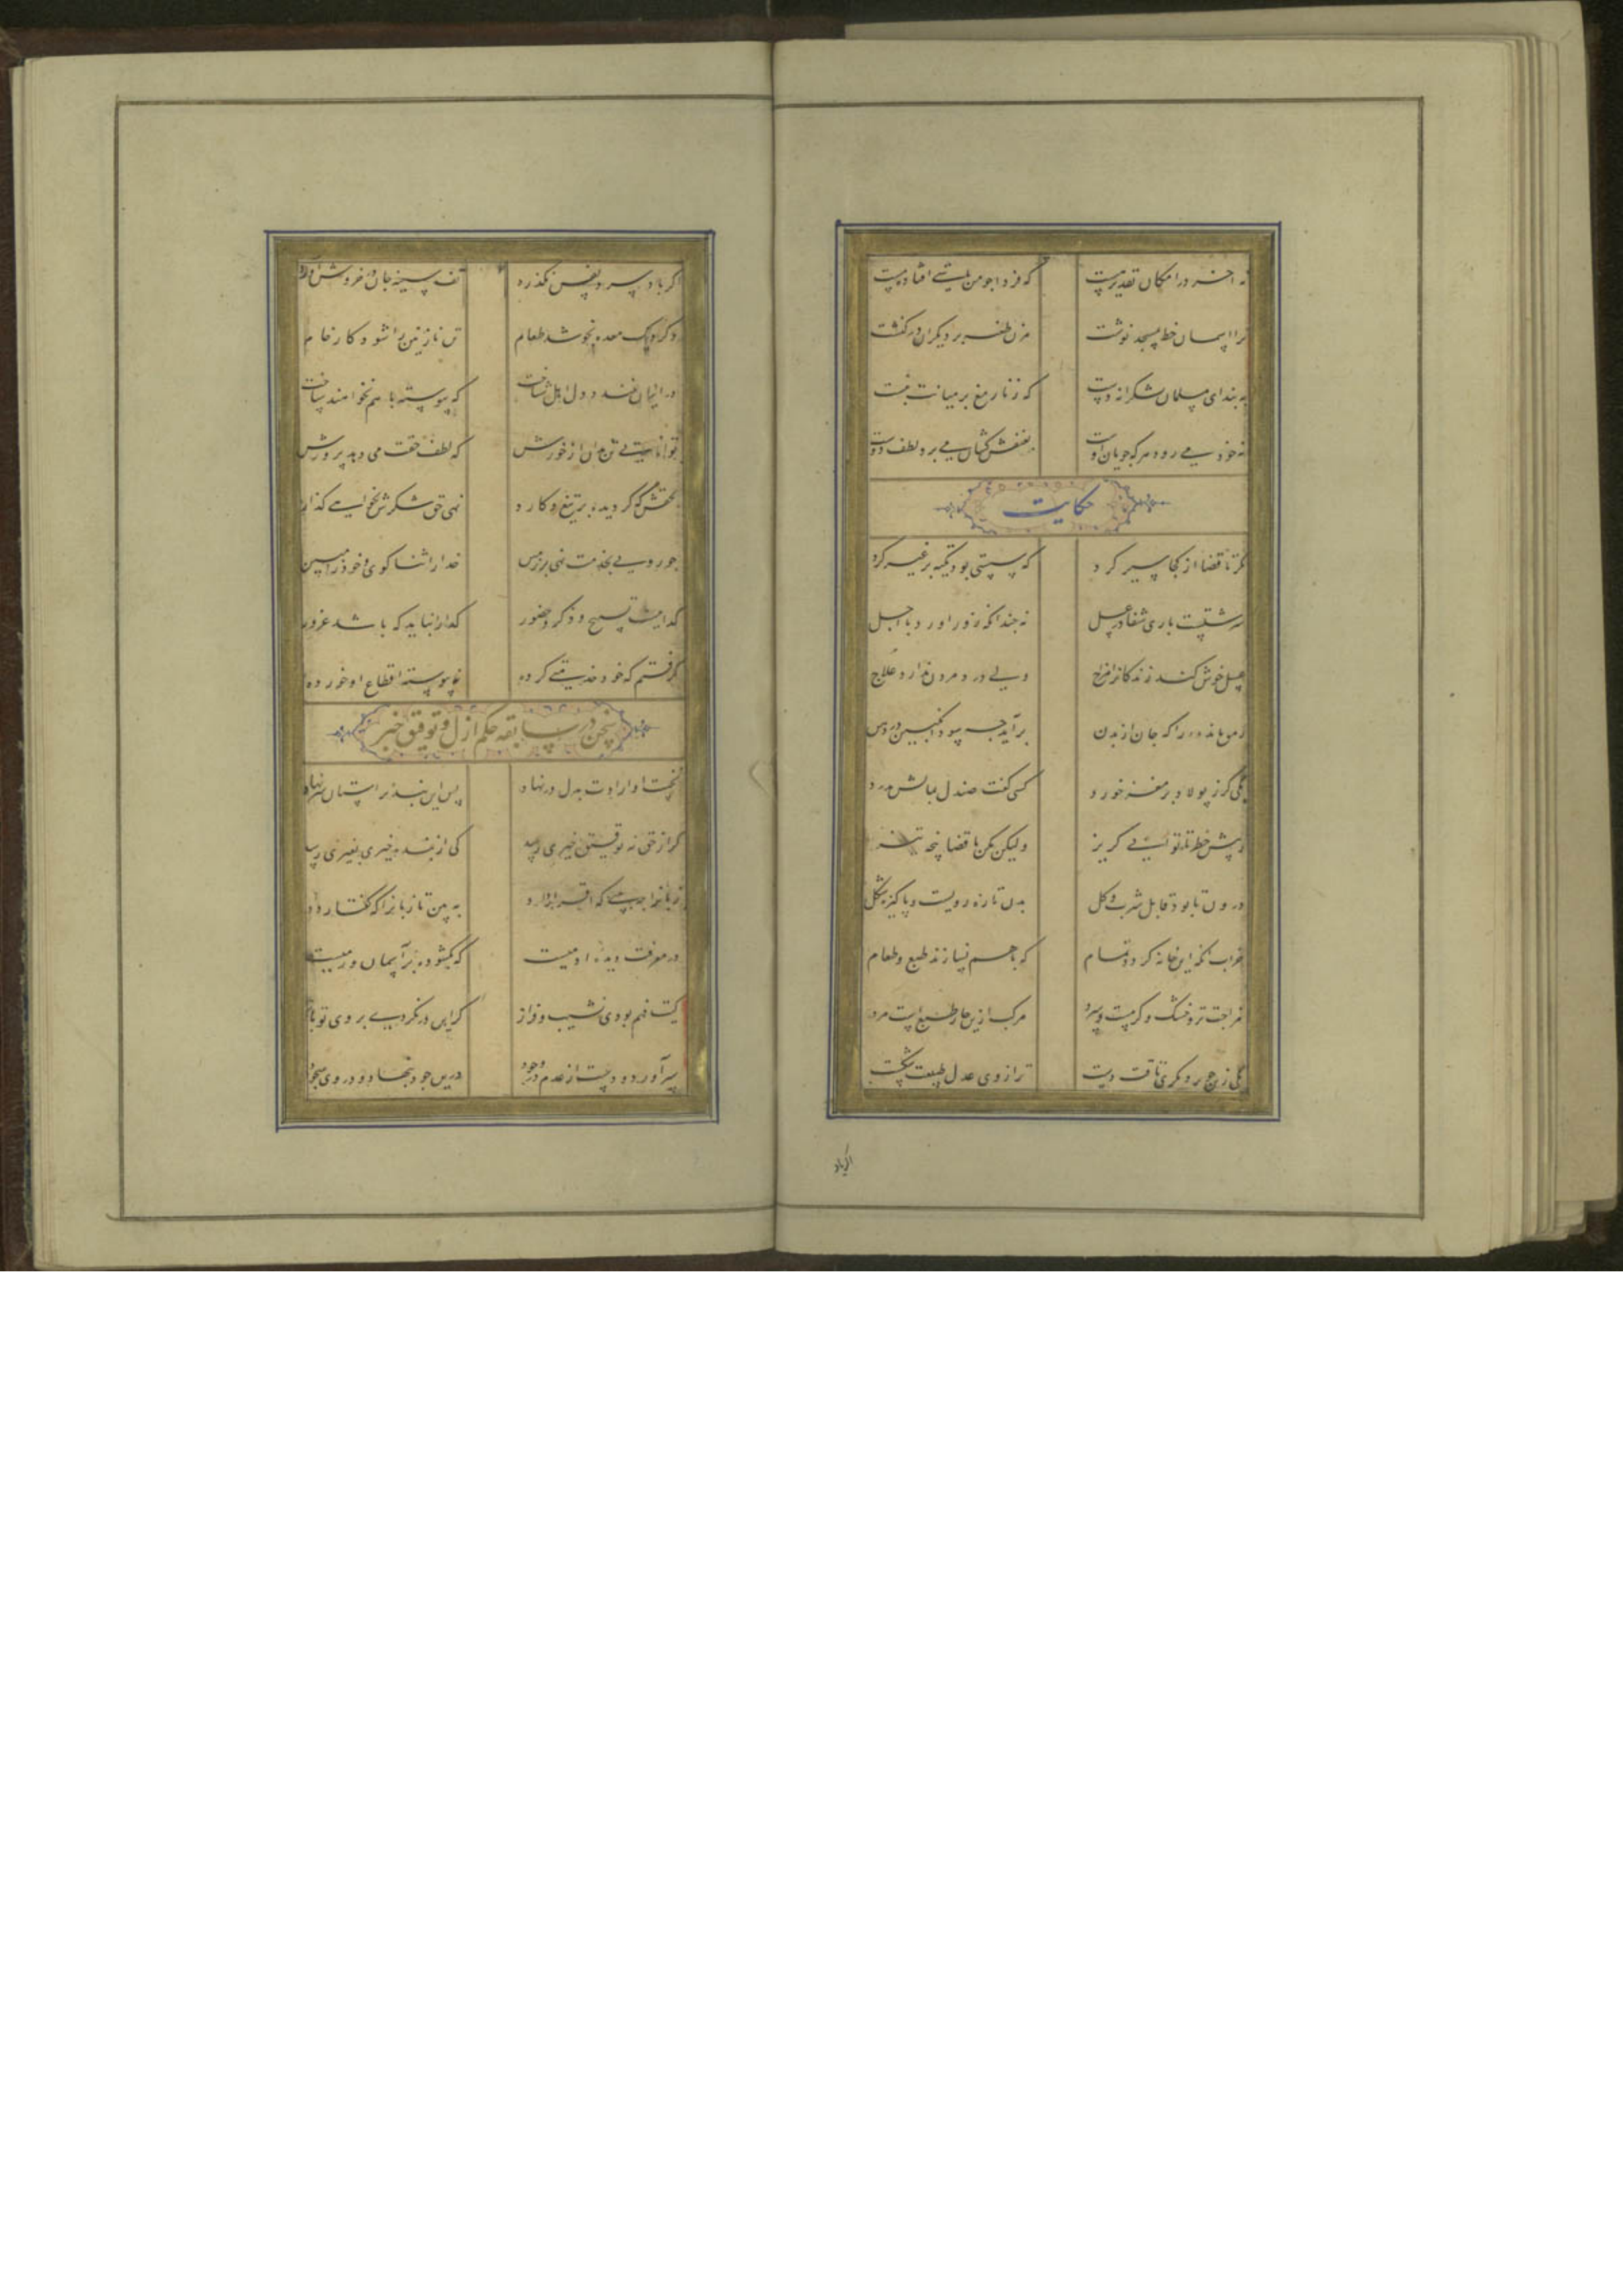 نه اخر در امکان تقدیر هست که فردا چو من باشی افتاده مست
ترا اسمان خط بمسجد نوشت مزن طعنه بر دیگران در کنشت
به بند ای مسلمان بشکرانه دست که زنار مغ بر میانت نبست
نه خود می رود هر که جویان اوست بعنفش کشان می برد لطف دوست
حکایت
نکر تا قضا از کجا سیر کرد که سستی بود تکیه بر غیر کرد
سرشتست باری شفا در عسل نه چندانکه زور اورد با اجل
عسل خوش کند زندکانرا مزاج ولی درد مردن ندارد علاج
رمق مانده را که جان از بدن برآید چه سود انکبین در دهن
یکی کرز پولاد بر مغز خورد کسی کفت صندل بمالش بدرد
ز پیش خطر تا توانی کریز ولیکن مکن با قضا پنجه تیز
درون تا بود قابل شرب و اکل بدن تازه رویست و پاکیزه شکل
خراب انکه این خانه کردد تمام که با هم نسازند طبع و طعام
مزاجت تر و خشک و کرمست و سرد مرکب ازین چار طبع است مرد
یکی زین چو بر دیکری یافت دست ترازوی عدل طبیعت شکست
اکر باد
اکر باد سرد نفس نکذرد تف سینه جان در خروش آورد
وکر دیک معده نجوشد طعام تن نازنین را شود کار خام
در اینان نبندد دل اهل شناخت که پیوسته با هم نخواهند ساخت
توانایی تن مدان از خورش که لطف حقت می دهد پرورش
بحقش که کر دیده بر تیغ و کارد نهی حق شکرش نخواهی کذارد
چو رویی بخدمت نهی بر زمین خدا را ثنا کوی و خود را مبین
کداییست تسبیح و ذکر و حضور کدا را نباید که باشد غرور
کرفتم که خود خدمتی کرده نه پیوسته اقطاع او خورده
سخن در سابقه حکم ازل و توفیق خیر
نخست او ارادت بدل در نهاد پس این بنده بر استان سر نهاد
کر از حق نه توفیق خیری رسد کی از بنده خیری بغیری رسد
زبانرا چه بینی که اقرار داد به بین تا زبانرا که کفتار داد
در معرفت دیده ادمیست که بکشوده بر آسمان و زمیست
کیت فهم بودی نشیب و فراز کر این در نکردی بروی تو باز
سر آورد و دست از عدم در وجود درین جود بنهاد و در وی سجود